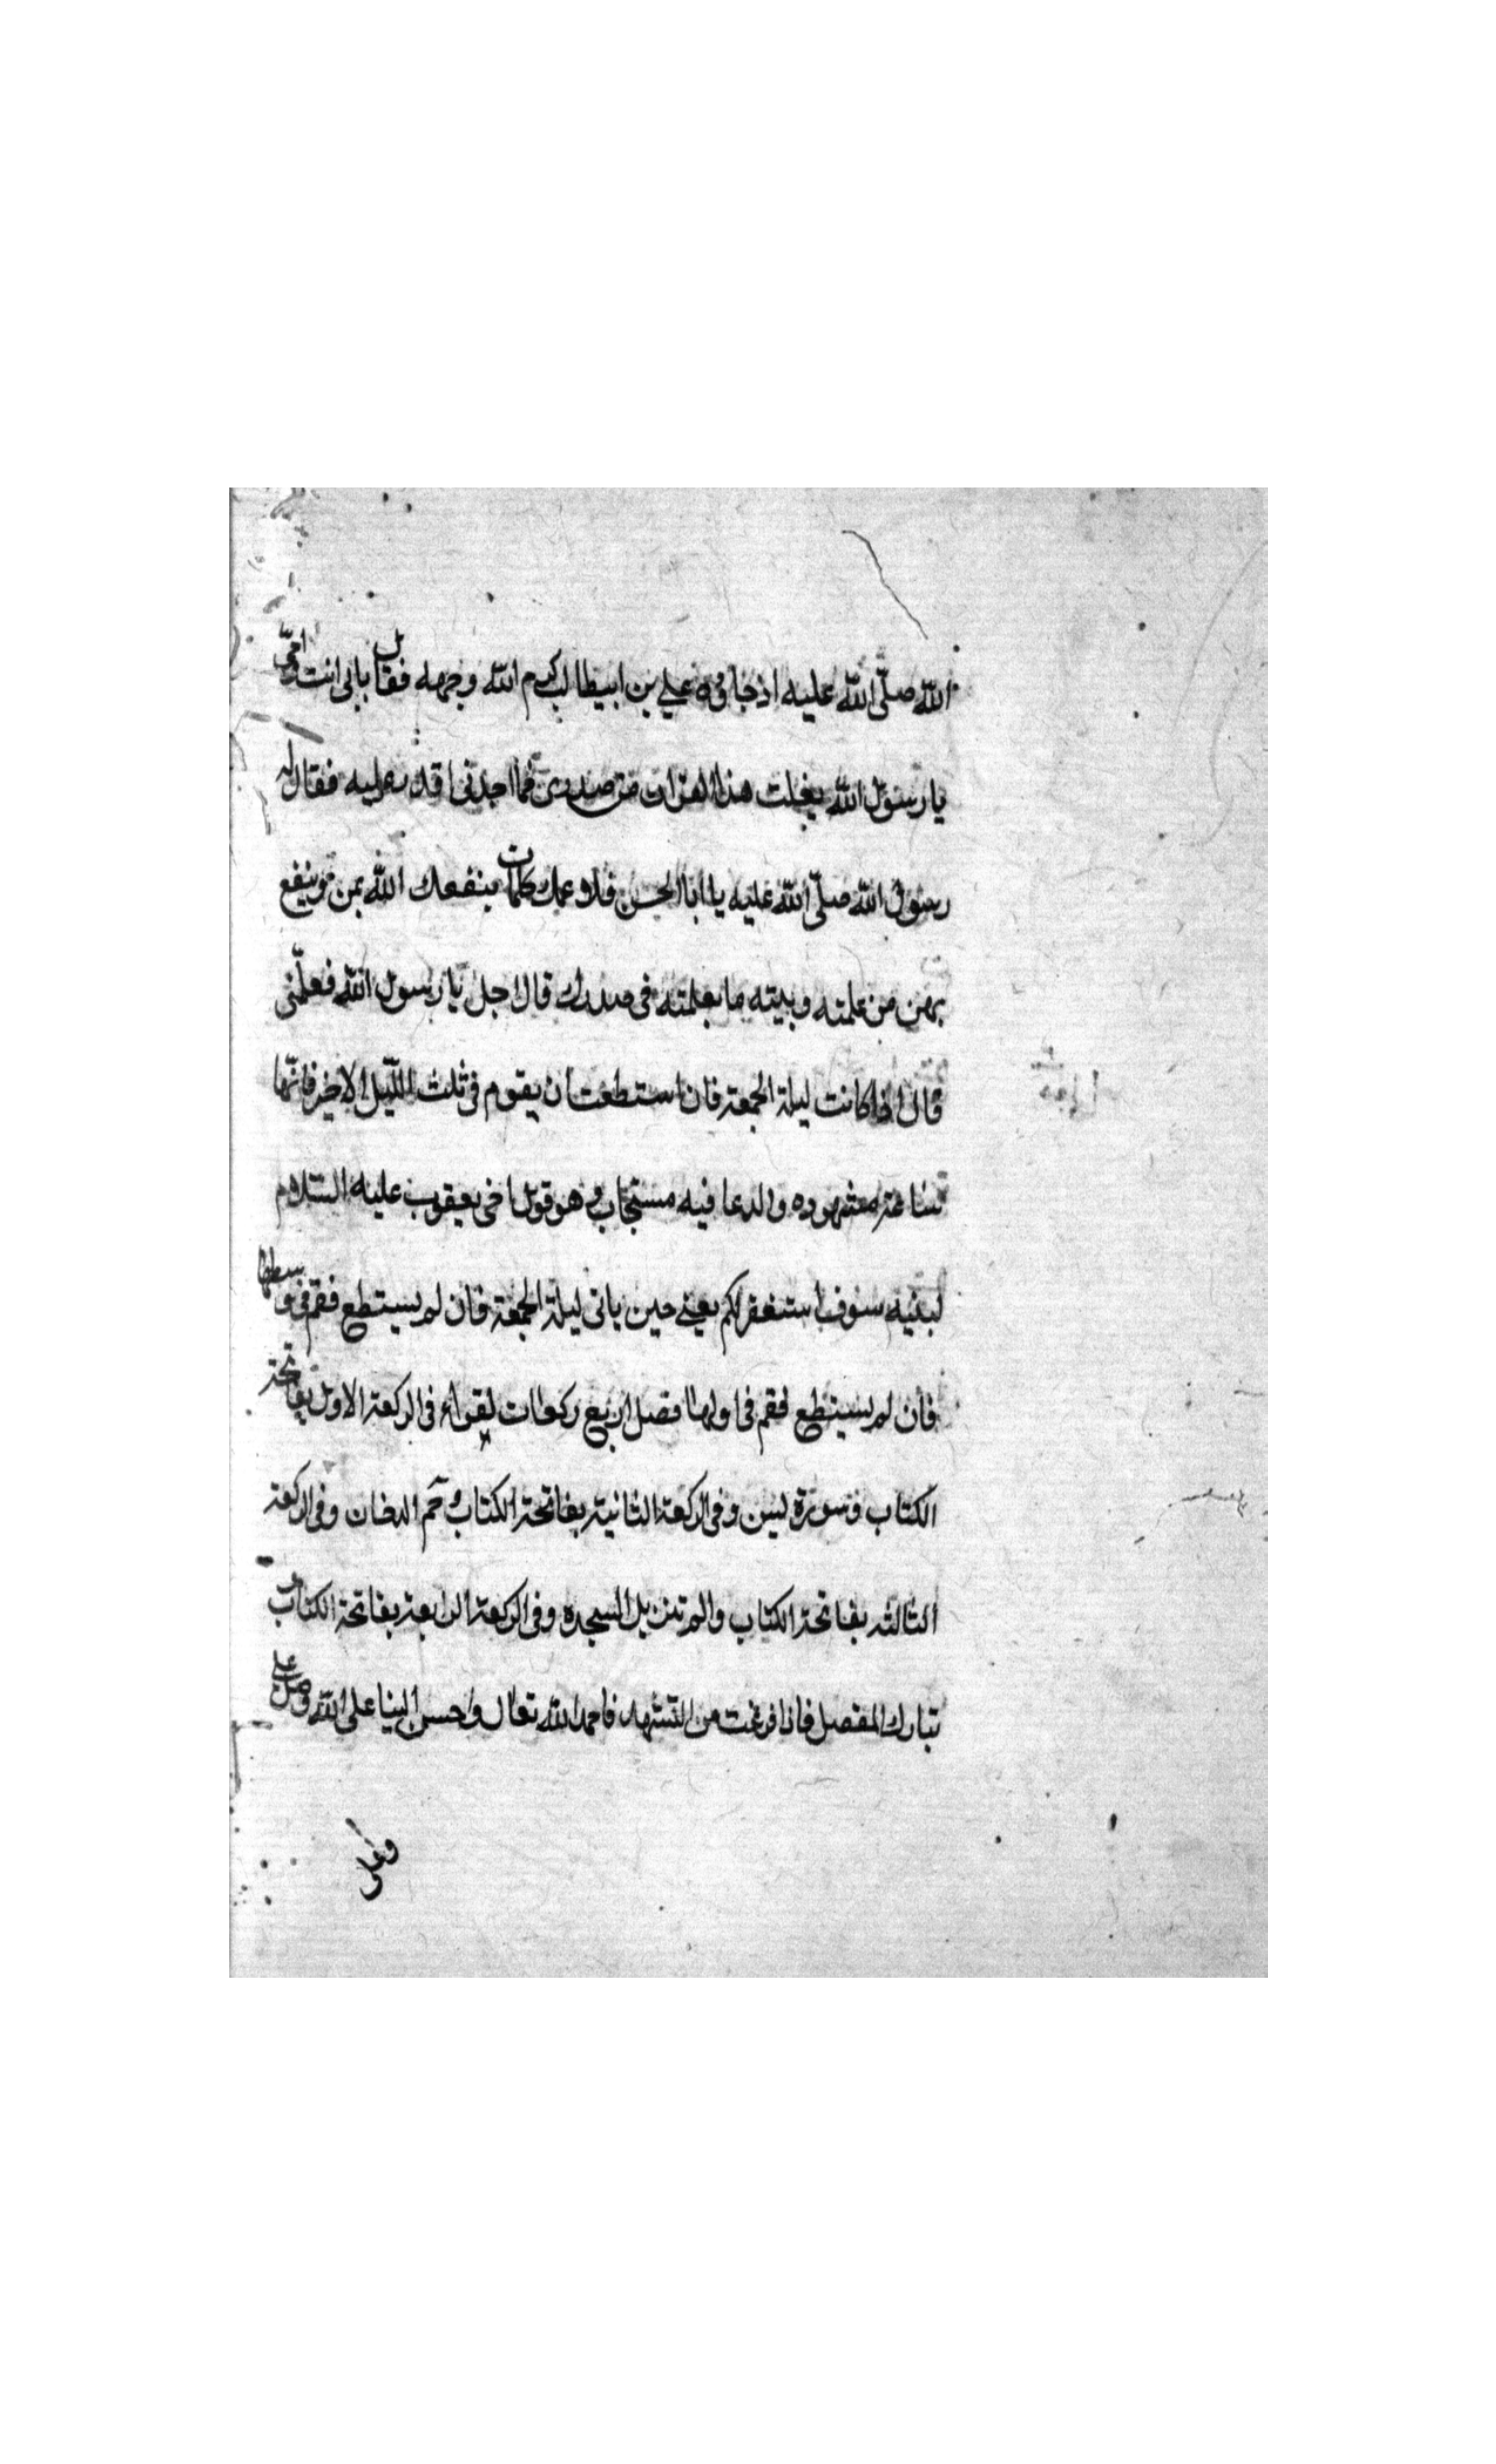 الله صلّى الله عليه اذ جاؤه علي بن ابيطالب كرم الله وجهه فقال بابى انت وامّى
يا رسول الله يغلت هذا القران من صدرى فما اجدنى اقدر عليه فقال له
رسول الله صلّى الله عليه يا ابا الحسن فلاو علمك كلمات ينفعك الله بهن وينفع
بهن من علمته وبيته ما بعلمته فى صدرك قال اجل يا رسول الله فعلّمنى
قال اذا كانت ليلة الجمعة فان استطعت ان يقوم فى ثلث اللّيل الاخير فانّها
ساعة مشهوده والدعا فيه مستجاب وهو قول اخى يعقوب عليه السّلام
لبنيه سوف استغفر لكم يعنى حين ياتى ليلة الجمعة فان لم يستطع فقم فى وسطها
فان لم يستطع فقم فى اولها فصل اربع ركعات يقراء فى الركعة الاول بفاتحة
الكتاب وسورة يس وفى الركعة الثانية بفاتحة الكتاب وحم الدخان وفى الركعة
الثالثه بفاتحة الكتاب والم تنزيل السجده وفى الركعة الرابعة بفاتحة الكتاب و
تبارك المفصل فاذا فرغت من التشهد فاحمد الله تعال واحسن الينا على الله وصل على
وعلى